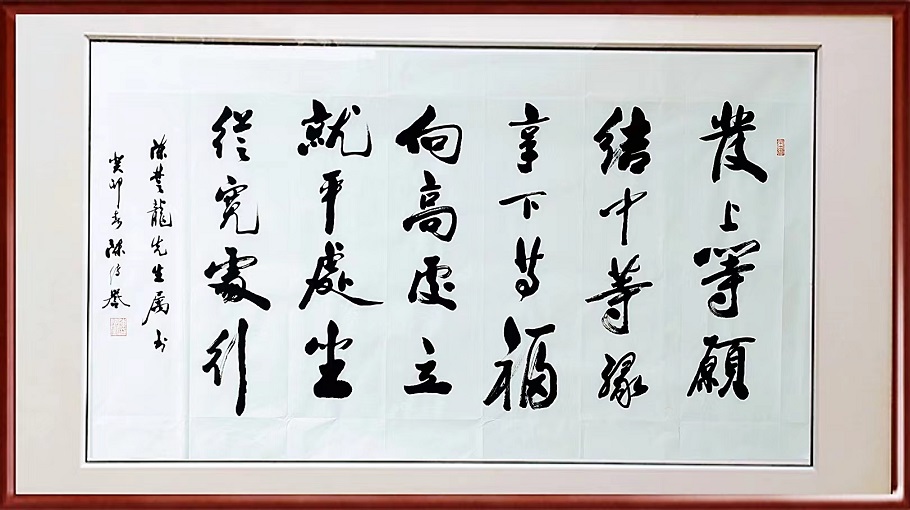 發上等願
結中等緣
享下等福
向高處立
就平處坐
從寬處行
陳楚龍先生属书
癸卯春陳傳譽